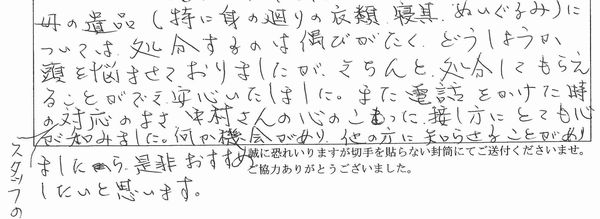 母の遺品(特に身の廻りの衣類、寝具、ぬいぐるみ)に
ついては、処分するのは偲びがたく、どうしようか、
頭を悩ませておりましたが、きちんと、処分してもらえ
ることができ、安心いたしました。また、電話をかけた時
の対応のよさ、中村さんの心のこもった接し方にとても心
が和みました。何か機会があり、他の方に知らさることがあり
ましたら、是非おすすめ
したいと思います。
スタッフの
誠に恐れいりますが切手を貼らない封筒にてご送付くださいませ。
ご協力ありがとうございました。